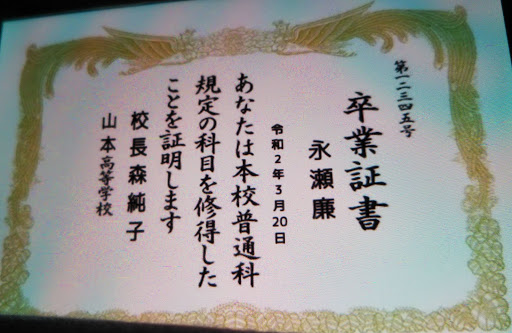 第一二三四五号
卒業証書
永瀬廉
令和2年3月20日
あなたは本校普通科
規定の科目を修得した
ことを証明します
校長森純子
山本高等学校